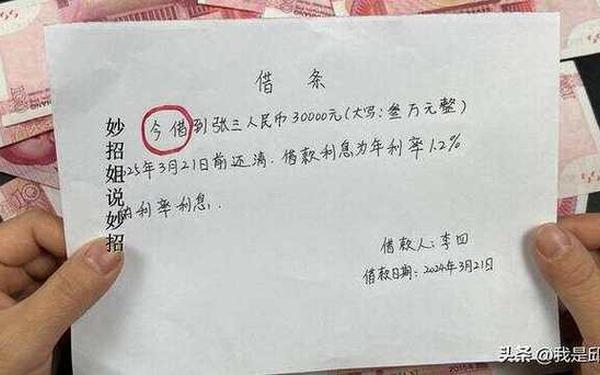 借条
今借到张三人民币30000元(大写:叁万元整)
25年3月21日前还清.借款利息为年利率12%
的利率利息.
借款人:李四
借款日期:2024年3月21日
妙招姐说妙招
头条 @我是邱